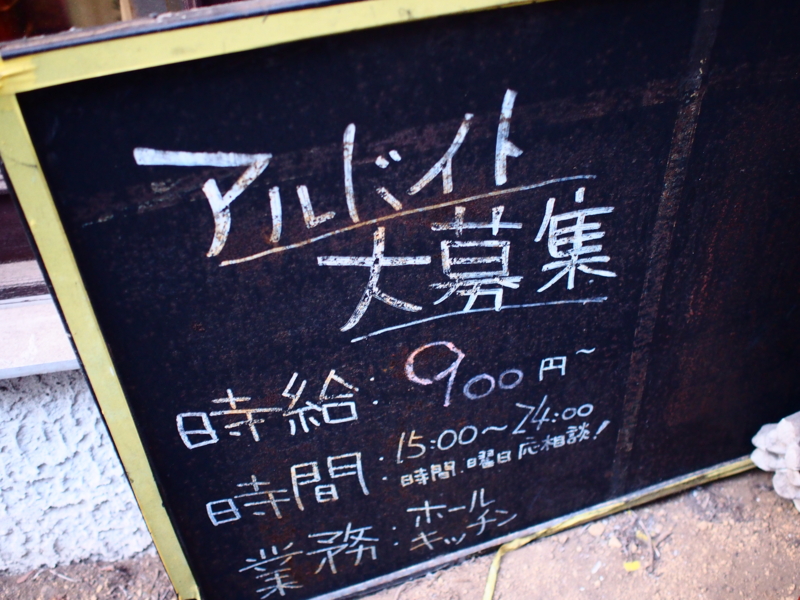 アルバイト
大募集
時給: 900円~
時間: 15:00~24:00
時間.曜日応相談!
業務: ホール
キッチン